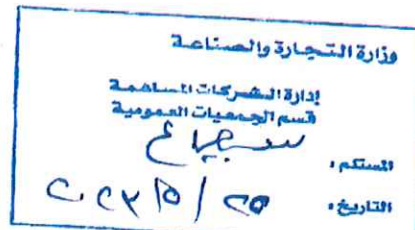 وزارة التجارة والصناعة
إدارة الشركات المساهمة
قسم الجمعيات العمومية
المستلم :
التاريخ : ٢٥ / ٥ / ٢٠٢٣